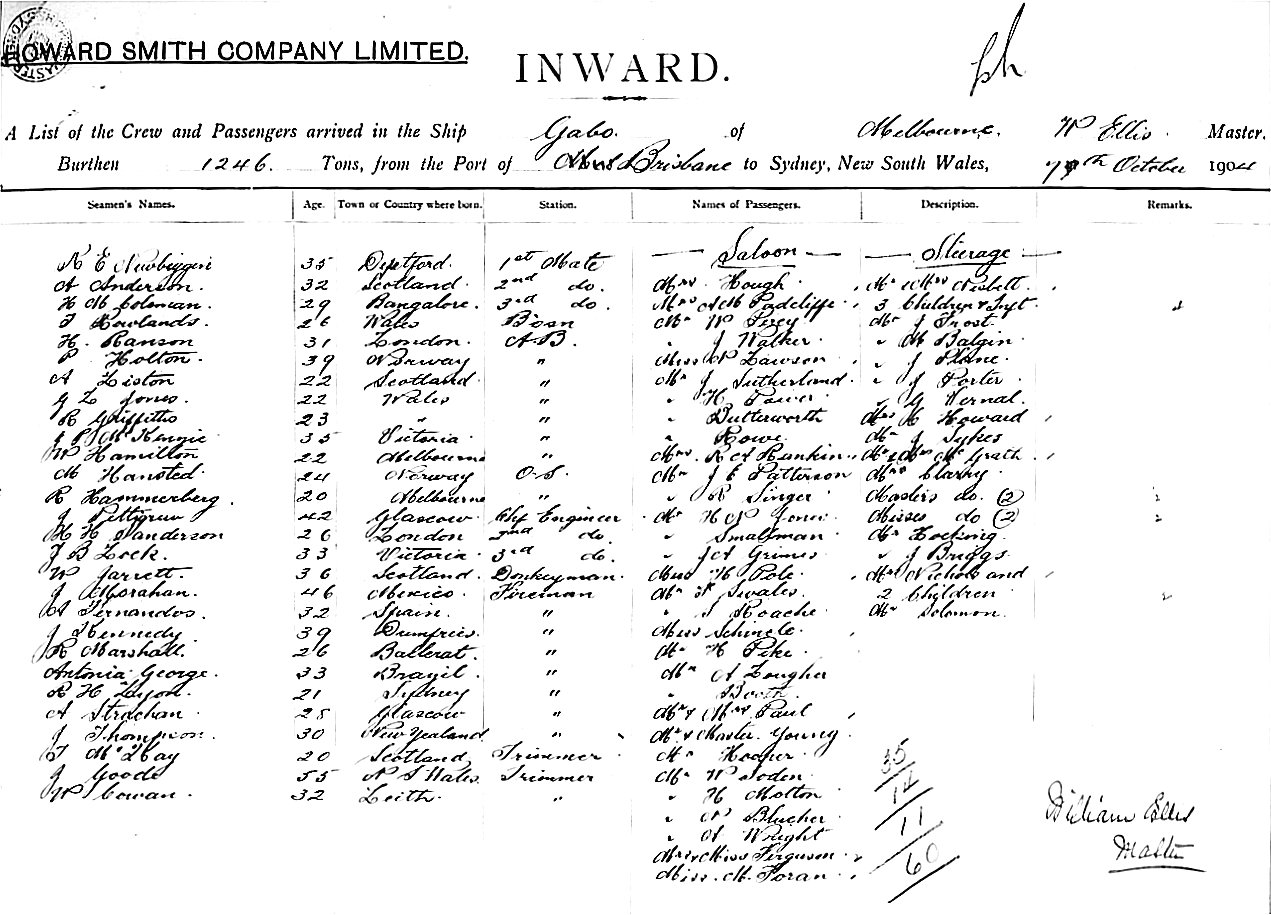 HOWARD SMITH COMPANY LIMITED.
INWARD.
A List of the Crew and Passengers arrived in the Ship Gabo. of Melbourne, W Ellis. Master.
Burthen 1246. Tons, from the Port of Brisbane to Sydney, New South Wales, October 1904
Seamen's Names. Age. Town or Country where born. Station. Names of Passengers. Description. Remarks.
Saloon Steerage
R E Newbiggin 35 Deptford. 1st Mate
A Anderson. 32 Scotland. 2nd do. Mrs Hough. Mr & Mrs Nisbett
H M Coleman. 29 Bangalore. 3rd do. Mrs A M Radcliffe. 3 Children & Inft
T Rowlands. 26 Wales Bosn Mr W Percy Mr J Frost.
H. Ranson 31 London. A.B. " J Walker. " M Balgin
P. Holton. 39 Norway " Miss N Lawson. " J Plane.
A Liston 22 Scotland. " Mr J Sutherland. " J Porter
G L Jones. 22 Wales " " H Power " G Vernal.
R Griffiths 23 " " " Butterworth Mrs K Howard
J P McKenzie 35 Victoria. " " Rowe. Mr J Sykes
W Hamilton 22 Melbourne " Mrs R A Rankin Mr & Mrs McGrath
M Hansted. 24 Norway O.S. Mr J E Patterson Mrs Clarry
R Hammerberg. 20 Melbourne " " R Singer Masters do. (2)
J Pettigrew 42 Glascow. Chf Engineer Mr H W Jones. Misses do (2)
H H Sanderson 26 London 2nd do. " Smallman Mr Hocking.
J B Lock. 33 Victoria. 3rd do. " J A Grimes " J Briggs
W Jarrett. 36 Scotland. Donkeyman. Miss H Pole. Mrs Nichols and
J Morahan. 46 Mexico. Fireman Mr F Swales. 2 Children
A Fernandos. 32 Spain. " " S Roache Mr Solomon.
J Kennedy. 39 Dumfries. " Miss Schinole.
R Marshall. 26 Ballerat. " Mr H Pike
Antonia George. 33 Brazil. " Mr A Lougher
R H Lyon. 21 Sydney " " Booth.
A Strachan 28 Glascow " Mr & Mrs Paul
J Thompson. 30 New Zealand. " Mr & Master Young
T McKay 20 Scotland Trimmer Mr Hooper
J Goode 55 N S Wales. Trimmer Mr W Soden 35
W Cowan. 32 Leith. " " H Molton 14
" N Blucher 11
" A Wright 60
Mrs & Miss Ferguson
Miss M. Foran
William Ellis
Master